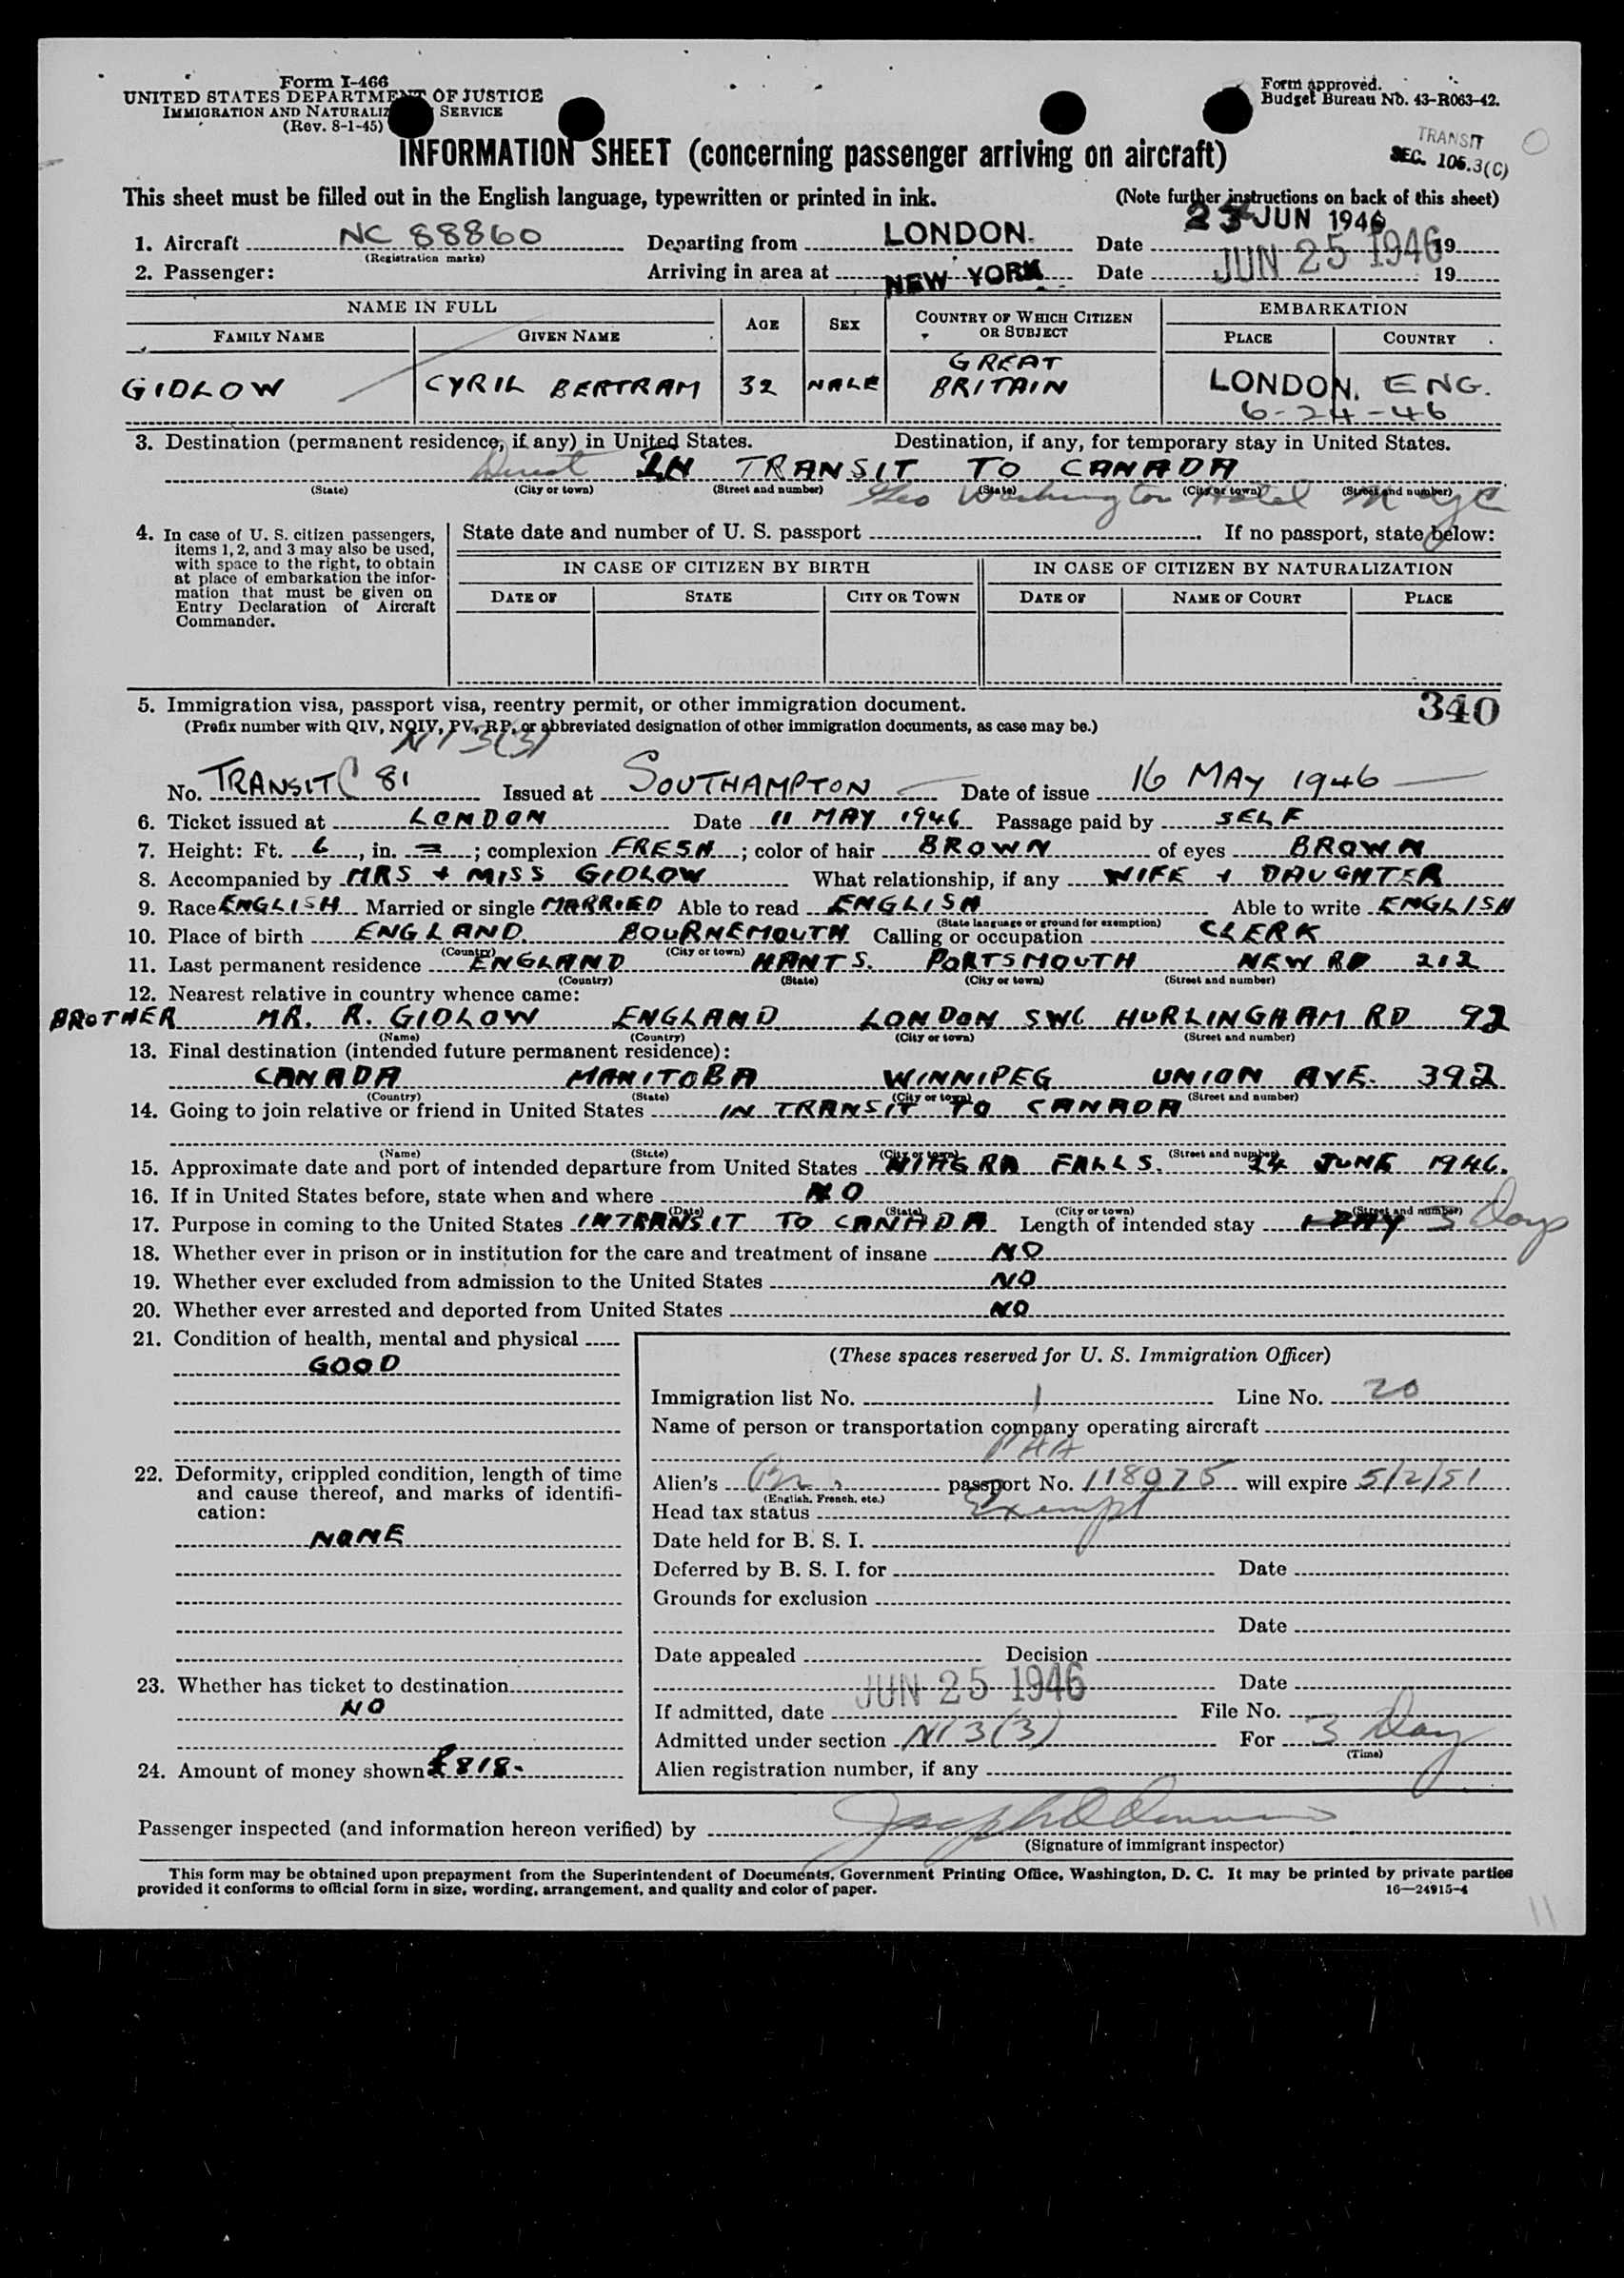 Form I-466
UNITED STATES DEPARTMENT OF JUSTICE
IMMIGRATION AND NATURALIZ SERVICE
(Rev. 8-1-45)
Form approved.
Budget Bureau No. 43-R063-42.
TRANSIT
SEC. 105.3(C)
INFORMATION SHEET (concerning passenger arriving on aircraft)
This sheet must be filled out in the English language, typewritten or printed in ink. (Note further instructions on back of this sheet)
1. Aircraft NC 88860 Departing from LONDON. Date JUN 1946 19
(Registration marks)
2. Passenger: Arriving in area at NEW YORK Date JUN 25 1946 19
NAME IN FULL AGE SEX COUNTRY OF WHICH CITIZEN OR SUBJECT EMBARKATION
FAMILY NAME GIVEN NAME PLACE COUNTRY
GIDLOW CYRIL BERTRAM 32 MALE GREAT BRITAIN LONDON, ENG.
6-24-46
3. Destination (permanent residence, if any) in United States. Destination, if any, for temporary stay in United States.
IN TRANSIT TO CANADA
(State) (City or town) (Street and number) (State) (City or town) (Street and number)
Geo Washington Hotel NYC
4. In case of U. S. citizen passengers, items 1, 2, and 3 may also be used, with space to the right, to obtain at place of embarkation the information that must be given on Entry Declaration of Aircraft Commander.
State date and number of U. S. passport . If no passport, state below:
IN CASE OF CITIZEN BY BIRTH IN CASE OF CITIZEN BY NATURALIZATION
DATE OF STATE CITY OR TOWN DATE OF NAME OF COURT PLACE
5. Immigration visa, passport visa, reentry permit, or other immigration document. 340
(Prefix number with QIV, NQIV, PV, RP, or abbreviated designation of other immigration documents, as case may be.)
3(3)
No. TRANSIT C 81 Issued at SOUTHAMPTON Date of issue 16 MAY 1946
6. Ticket issued at LONDON Date 11 MAY 1946 Passage paid by SELF
7. Height: Ft. 6, in. ; complexion FRESH; color of hair BROWN of eyes BROWN
8. Accompanied by MRS + MISS GIDLOW What relationship, if any WIFE + DAUGHTER
9. Race ENGLISH Married or single MARRIED Able to read ENGLISH Able to write ENGLISH
(State language or ground for exemption)
10. Place of birth ENGLAND BOURNEMOUTH Calling or occupation CLERK
(Country) (City or town)
11. Last permanent residence ENGLAND HANTS. PORTSMOUTH NEW RD 212
(Country) (State) (City or town) (Street and number)
12. Nearest relative in country whence came:
BROTHER MR. R. GIDLOW ENGLAND LONDON SW6 HURLINGHAM RD 92
(Name) (Country) (City or town) (Street and number)
13. Final destination (intended future permanent residence):
CANADA MANITOBA WINNIPEG UNION AVE. 392
(Country) (State) (City or town) (Street and number)
14. Going to join relative or friend in United States IN TRANSIT TO CANADA
(Name) (State) (City or town) (Street and number)
15. Approximate date and port of intended departure from United States NIAGRA FALLS. 24 JUNE 1946.
16. If in United States before, state when and where NO
(Date) (State) (City or town) (Street and number)
17. Purpose in coming to the United States IN TRANSIT TO CANADA Length of intended stay 1 DAY 3 Days
18. Whether ever in prison or in institution for the care and treatment of insane NO
19. Whether ever excluded from admission to the United States NO
20. Whether ever arrested and deported from United States NO
21. Condition of health, mental and physical
GOOD
22. Deformity, crippled condition, length of time and cause thereof, and marks of identification:
NONE
23. Whether has ticket to destination
NO
24. Amount of money shown £818-
(These spaces reserved for U. S. Immigration Officer)
Immigration list No. 1 Line No. 20
Name of person or transportation company operating aircraft
PAA
Alien's Br. passport No. 118075 will expire 5/2/51
(English, French, etc.)
Head tax status Exempt
Date held for B. S. I.
Deferred by B. S. I. for Date
Grounds for exclusion
Date
Date appealed Decision
Date
If admitted, date JUN 25 1946 File No.
Admitted under section 3(3) For 3 Day
(Time)
Alien registration number, if any
Passenger inspected (and information hereon verified) by
(Signature of immigrant inspector)
This form may be obtained upon prepayment from the Superintendent of Documents, Government Printing Office, Washington, D. C. It may be printed by private parties
provided it conforms to official form in size, wording, arrangement, and quality and color of paper. 16—24915-4
11